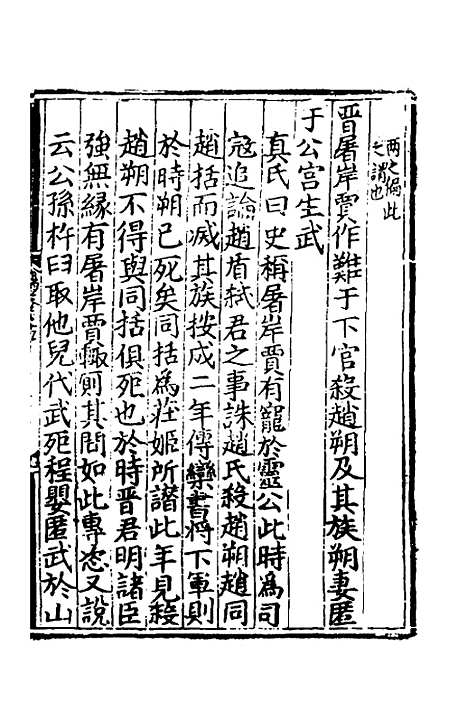 兩之傷此
之謂也
晋屠岸賈作難于下宫殺趙朔及其族朔妻匿
于公宫生武
真氏曰史稱屠岸賈有寵於靈公此時爲司
冦追論趙盾弑君之事誅趙氏殺趙朔趙同
趙括而滅其族按成二年傳欒書將下軍則
於時朔已死矣同括爲莊姬所譖此年見殺
趙朔不得與同括俱死也於時晋君明諸臣
強無緣有屠岸賈輙厠其間如此專恣又說
云公孫杵臼取他兒代武死程嬰匿武於山